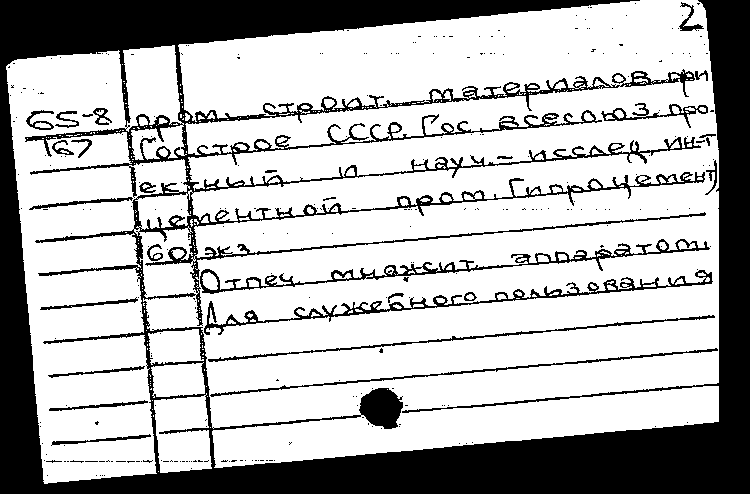 2
65-8 пром. строит. материалов при
167 Госстрое СССР. Гос. всесоюз. про-
ектный и науч.-исслед. ин-т
цементной пром. Гипроцемент)
60 экз.
Отпеч. множит. аппаратом.
Для служебного пользования